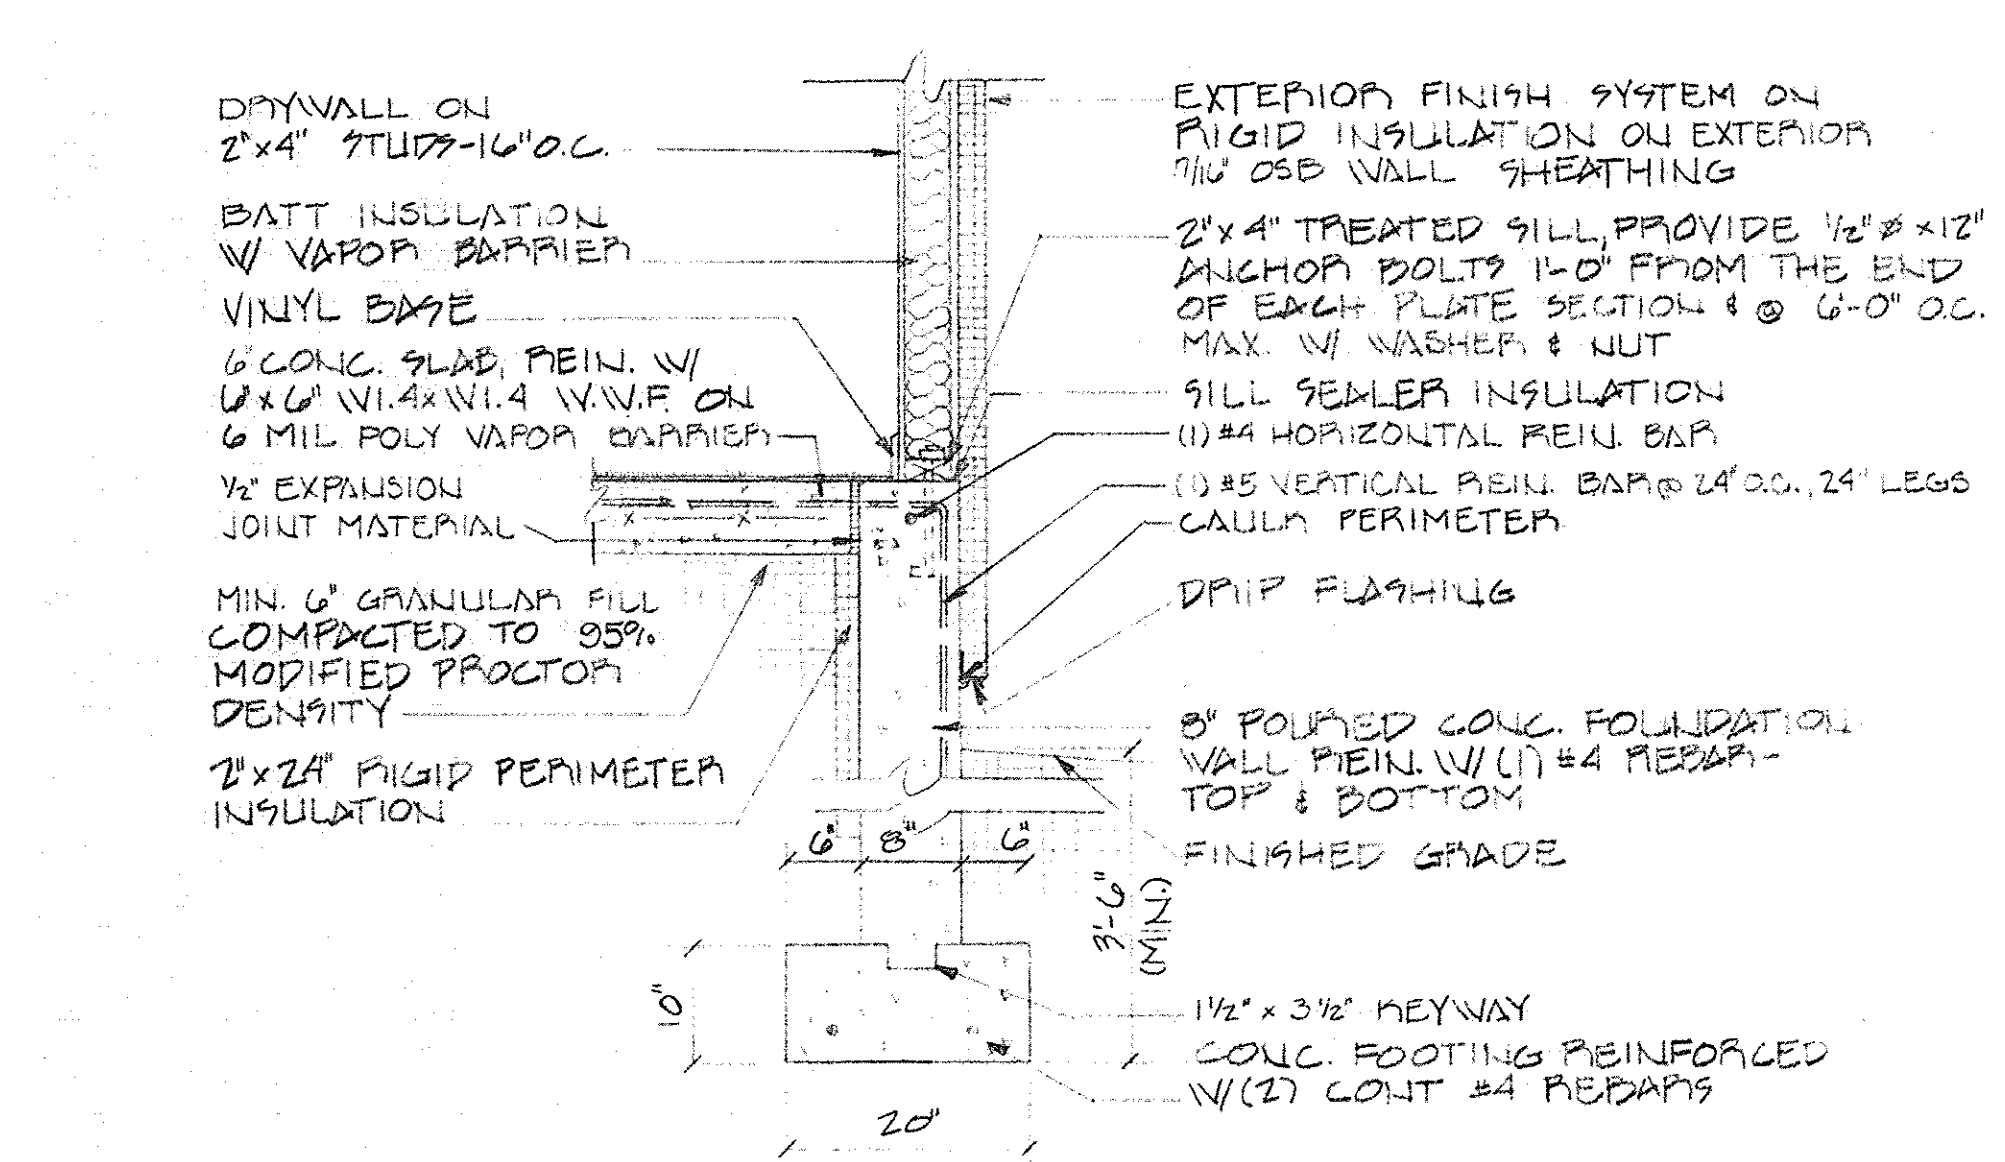 DRYWALL ON
2"x4" STUDS-16"O.C.
BATT INSULATION
W/ VAPOR BARRIER
VINYL BASE
6" CONC. SLAB, REIN. W/
6"x6" W1.4xW1.4 W.W.F. ON
6 MIL POLY VAPOR BARRIER
1/2" EXPANSION
JOINT MATERIAL
MIN. 6" GRANULAR FILL
COMPACTED TO 95%
MODIFIED PROCTOR
DENSITY
2"x24" RIGID PERIMETER
INSULATION
EXTERIOR FINISH SYSTEM ON
RIGID INSULATION ON EXTERIOR
7/16" OSB WALL SHEATHING
2"x4" TREATED SILL, PROVIDE 1/2" Ø x12"
ANCHOR BOLTS 1'-0" FROM THE END
OF EACH PLATE SECTION & @ 6'-0" O.C.
MAX. W/ WASHER & NUT
SILL SEALER INSULATION
(1) #4 HORIZONTAL REIN. BAR
(1) #5 VERTICAL REIN. BAR @ 24" O.C., 24" LEGS
CAULK PERIMETER
DRIP FLASHING
8" POURED CONC. FOUNDATION
WALL REIN. W/ (1) #4 REBAR-
TOP & BOTTOM
FINISHED GRADE
6" 8" 6"
3'-6"
(MIN.)
10"
20"
1 1/2" x 3 1/2" KEYWAY
CONC. FOOTING REINFORCED
W/(2) CONT #4 REBARS